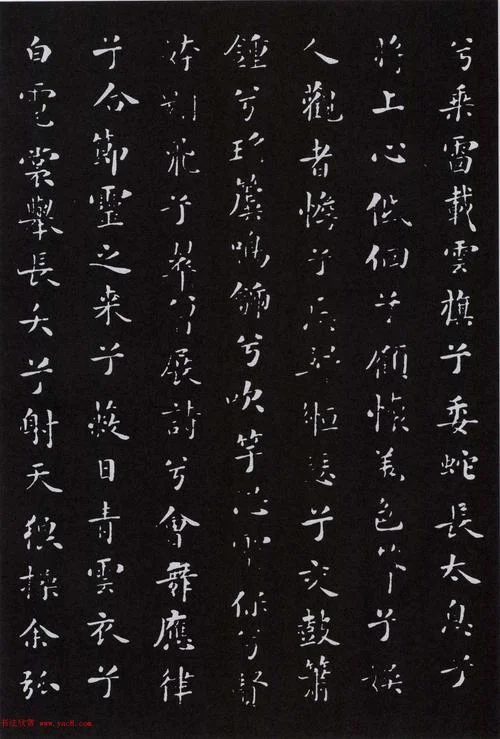 兮乘雷載雲旗兮委蛇長太息兮
將上心低佪兮顧懷羌色兮娛
人觀者憺兮忘歸緪瑟兮交鼓簫
鍾兮瑤簴鳴篪兮吹竽思靈保兮賢
姱翾飛兮翠曾展詩兮會舞應律
兮合節靈之来兮蔽日青雲衣兮
白霓裳舉長矢兮射天狼操余弧
书法欣赏 www.yac8.com